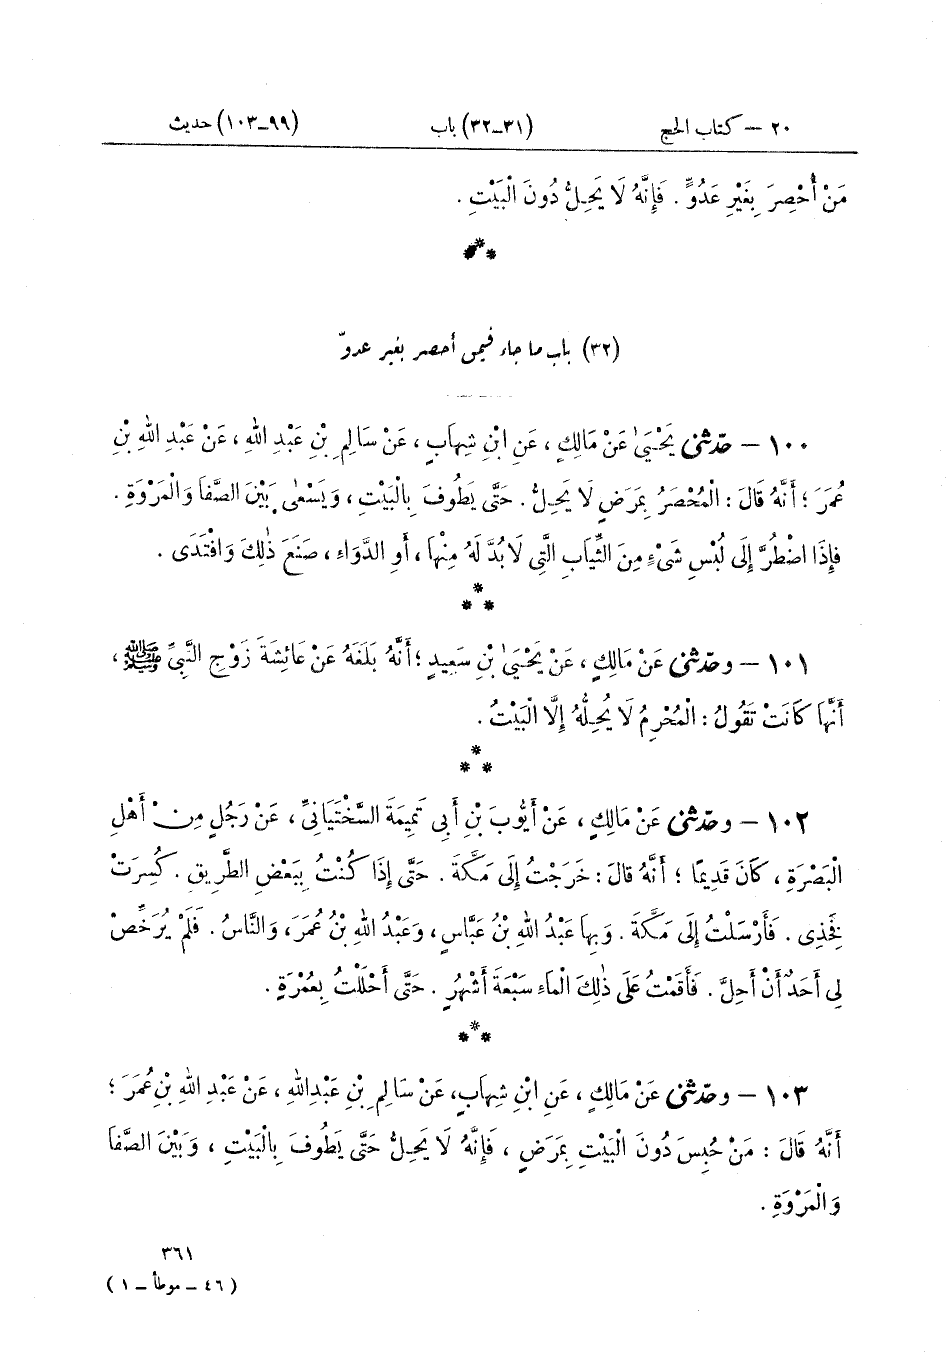 ٢٠ — كتاب الحج (٣١_٣٢) باب (٩٩_١٠٣) حديث
مَنْ أُحْصِرَ بِغَيْرِ عَدُوٍّ . فَإِنَّهُ لَا يَحِلُّ دُونَ الْبَيْتِ .
(٣٢) باب ما جاء فيمن أحصر بغير عدوّ
١٠٠ — حدّثنى يَحْيَىٰ عَنْ مَالِكٍ ، عَنِ ابْنِ شِهَابٍ ، عَنْ سَالِمِ بْنِ عَبْدِ اللهِ ، عَنْ عَبْدِ اللهِ بْنِ
عُمَرَ ؛ أَنَّهُ قَالَ : الْمُحْصَرُ بِمَرَضٍ لَا يَحِلُّ . حَتَّى يَطُوفَ بِالْبَيْتِ ، وَيَسْعَى بَيْنَ الصَّفَا وَالْمَرْوَةِ .
فَإِذَا اضْطُرَّ إِلَى لُبْسِ شَىْءٍ مِنَ الثِّيَابِ الَّتِى لَا بُدَّ لَهُ مِنْهَا ، أَوِ الدَّوَاءِ ، صَنَعَ ذٰلِكَ وَافْتَدَى .
١٠١ — وحدّثنى عَنْ مَالِكٍ ، عَنْ يَحْيَىٰ بْنِ سَعِيدٍ ؛ أَنَّهُ بَلَغَهُ عَنْ عَائِشَةَ زَوْجِ النَّبِىِّ ﷺ ،
أَنَّهَا كَانَتْ تَقُولُ : الْمُحْرِمُ لَا يُحِلُّهُ إِلَّا الْبَيْتُ .
١٠٢ — وحدّثنى عَنْ مَالِكٍ ، عَنْ أَيُّوبَ بْنِ أَبِى تَمِيمَةَ السَّخْتَيَانِىِّ ، عَنْ رَجُلٍ مِنْ أَهْلِ
الْبَصْرَةِ ، كَانَ قَدِيمًا ؛ أَنَّهُ قَالَ : خَرَجْتُ إِلَى مَكَّةَ . حَتَّى إِذَا كُنْتُ بِبَعْضِ الطَّرِيقِ . كُسِرَتْ
فَخِذِى . فَأَرْسَلْتُ إِلَى مَكَّةَ . وَبِهَا عَبْدُ اللهِ بْنُ عَبَّاسٍ ، وَعَبْدُ اللهِ بْنُ عُمَرَ ، وَالنَّاسُ . فَلَمْ يُرَخِّصْ
لِى أَحَدٌ أَنْ أَحِلَّ . فَأَقَمْتُ عَلَى ذٰلِكَ الْمَاءِ سَبْعَةَ أَشْهُرٍ . حَتَّى أَحْلَلْتُ بِعُمْرَةٍ .
١٠٣ — وحدّثنى عَنْ مَالِكٍ ، عَنِ ابْنِ شِهَابٍ، عَنْ سَالِمِ بْنِ عَبْدِاللهِ ، عَنْ عَبْدِ اللهِ بْنِ عُمَرَ ؛
أَنَّهُ قَالَ : مَنْ حُبِسَ دُونَ الْبَيْتِ بِمَرَضٍ ، فَإِنَّهُ لَا يَحِلُّ حَتَّى يَطُوفَ بِالْبَيْتِ ، وَبَيْنَ الصَّفَا
وَالْمَرْوَةِ .
٣٦١
(٤٦ - موطأ - ١)